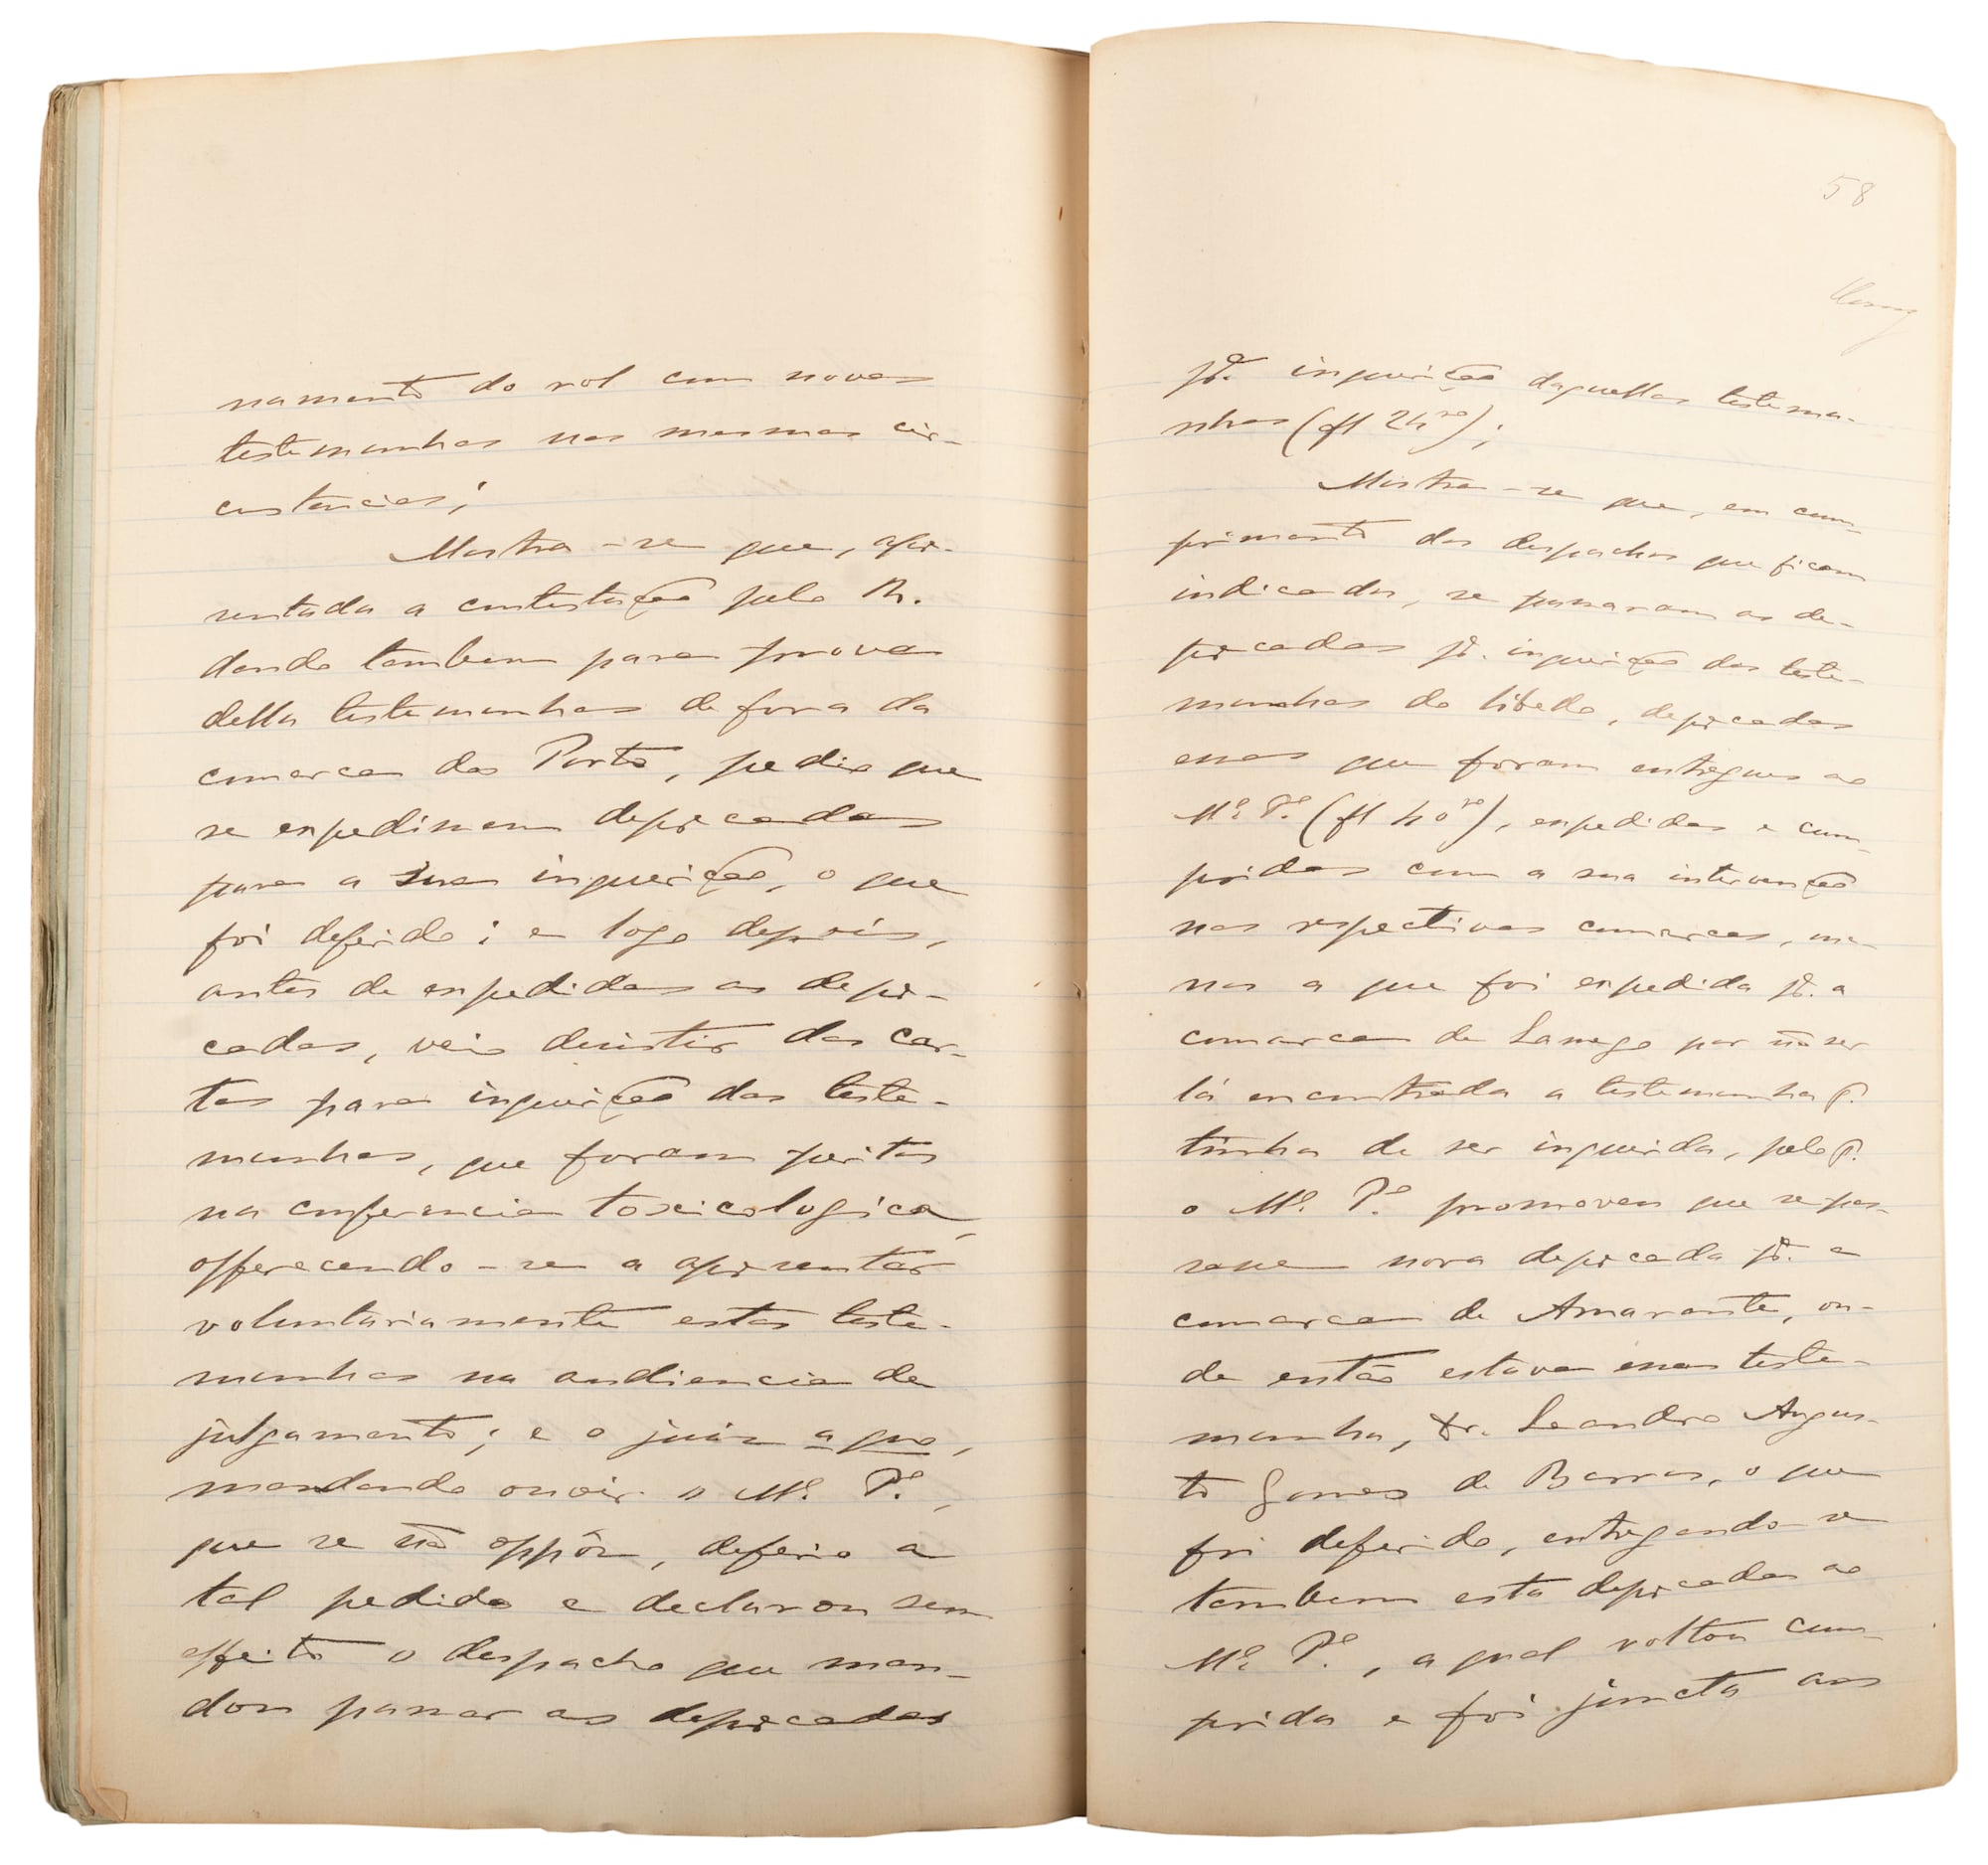 namento do rol com novas
testemunhas nas mesmas cir-
custancias;
Mostra-se que, apre-
sentada a contestação pelo R.
dando tambem para prova
della testemunhas de fora da
comarca do Porto, pedio que
se expedissem deprecadas
para a sua inquirição, o que
foi deferido; e logo depois,
antes de expedidas as depre-
cadas, veio desistir das car-
tas para inquirição das teste-
munhas, que foram peritos
na conferencia toxicologica,
offerecendo-se a apresentar
voluntariamente estas teste-
munhas na audiencia de
julgamento; e o juiz a quo,
mandando ouvir o Mº. Pº.,
que se não oppôz, deferio a
tal pedido e declarou sem
effeito o despacho que man-
dou passar as deprecadas
58
pª. inquirição daquellas testemu-
nhas (fl 24vo);
Mostra-se que, em cum-
primento dos despachos que ficam
indicados, se passaram as de-
precadas pª. inquirição das teste-
munhas do libello, deprecadas
essas que foram entregues ao
Mº. Pº. (fl 40vo), expedidas e cum-
pridas com a sua intervenção
nas respectivas comarcas, me-
nos a que foi expedida pª. a
comarca de Lamego por não ser
lá encontrada a testemunha q.
tinha de ser inquirida, pelo q.
o Mº. Pº. promoveu que se pas-
sasse nova deprecada pª. a
comarca de Amarante, on-
de então estava essa teste-
munha, Dr. Leandro Augus-
to Gomes de Barros, o que
foi deferido, entregando-se
tambem esta deprecada ao
Mº. Pº., a qual voltou cum-
prida e foi juncta aos